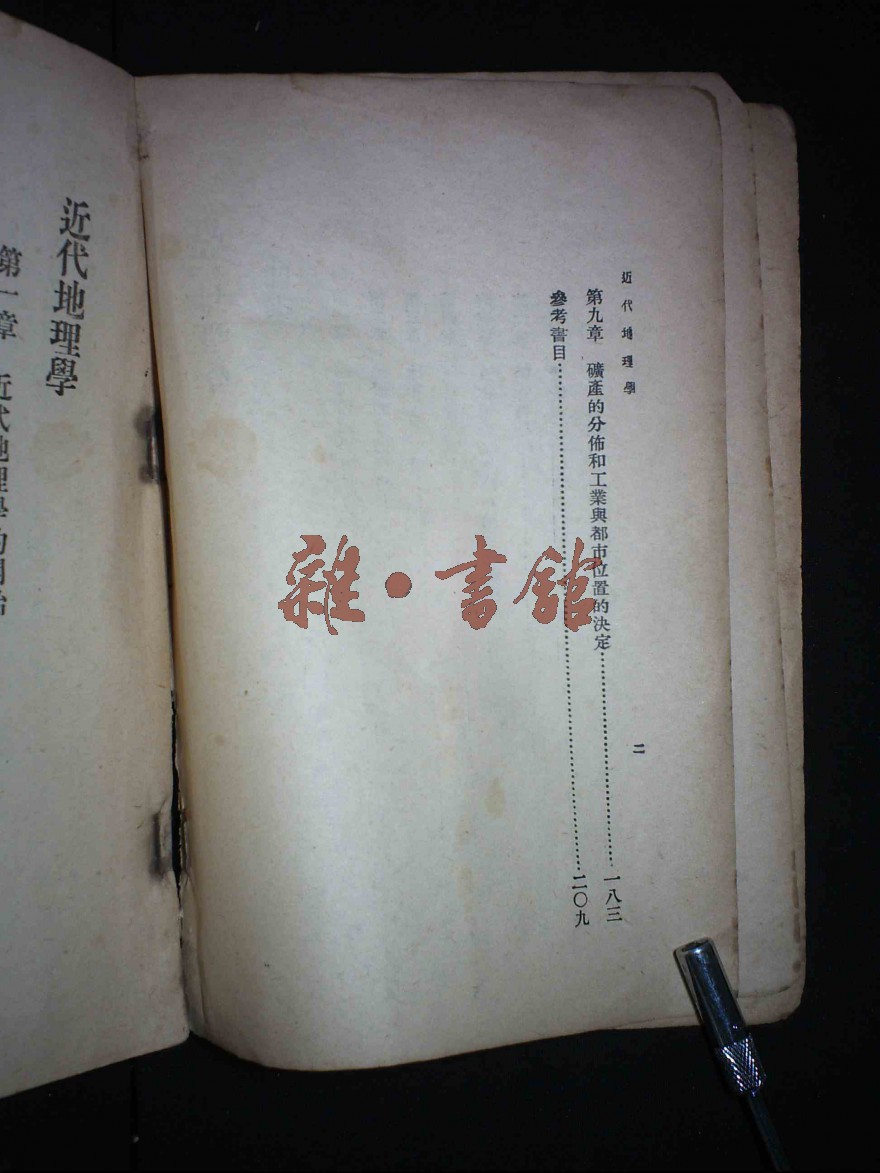 近代地理學
二
第九章　礦產的分佈和工業與都市位置的決定……一八三
參考書目……二〇九
雜·書館
近代地理學
第一章　近代地理學的開始